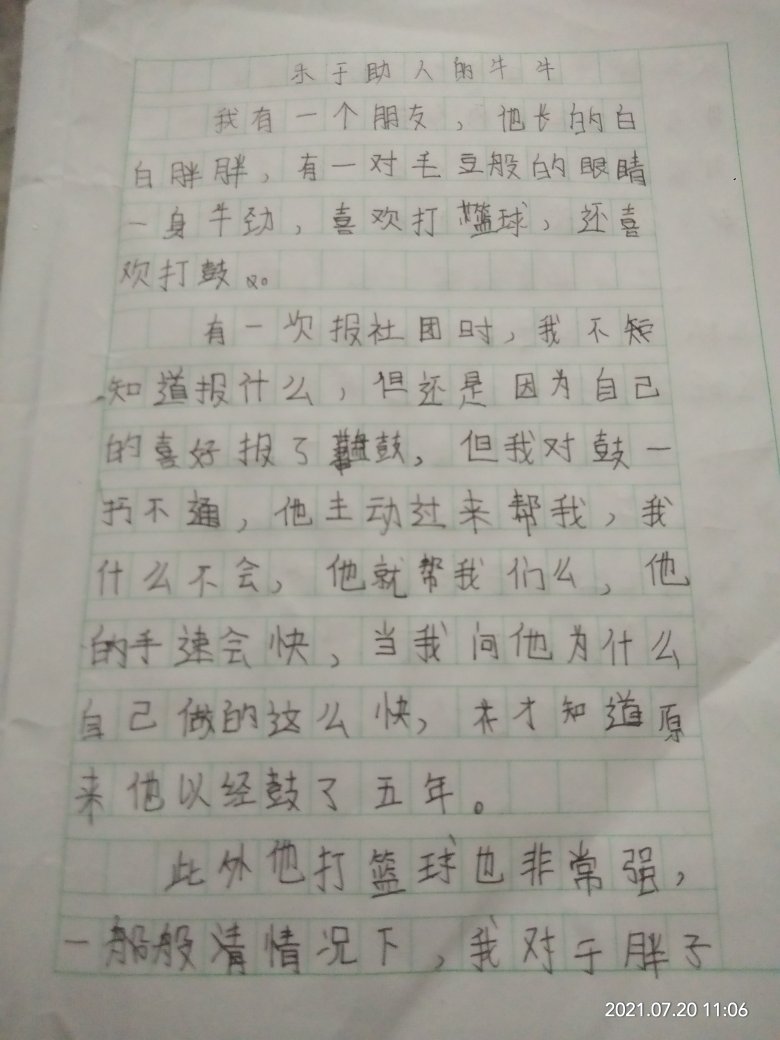 乐于助人的牛牛
我有一个朋友，他长的白
白胖胖，有一对毛豆般的眼睛
一身牛劲，喜欢打篮球，还喜
欢打鼓。
有一次报社团时，我不
知道报什么，但还是因为自己
的喜好报了鼓，但我对鼓一
窍不通，他主动过来帮我，我
什么不会，他就帮我们么，他
的手速会快，当我问他为什么
自己做的这么快，才知道原
来他以经鼓了五年。
此外他打篮球也非常强，
一般情况下，我对于胖子
2021.07.20 11:06